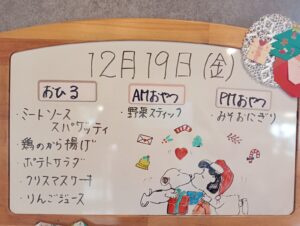 12月19日(金)
おひる
・ミートソース
スパゲッティ
・鶏のから揚げ
・ポテトサラダ
・クリスマスケーキ
・りんごジュース
AMおやつ
・野菜スティック
PMおやつ
・みそおにぎり